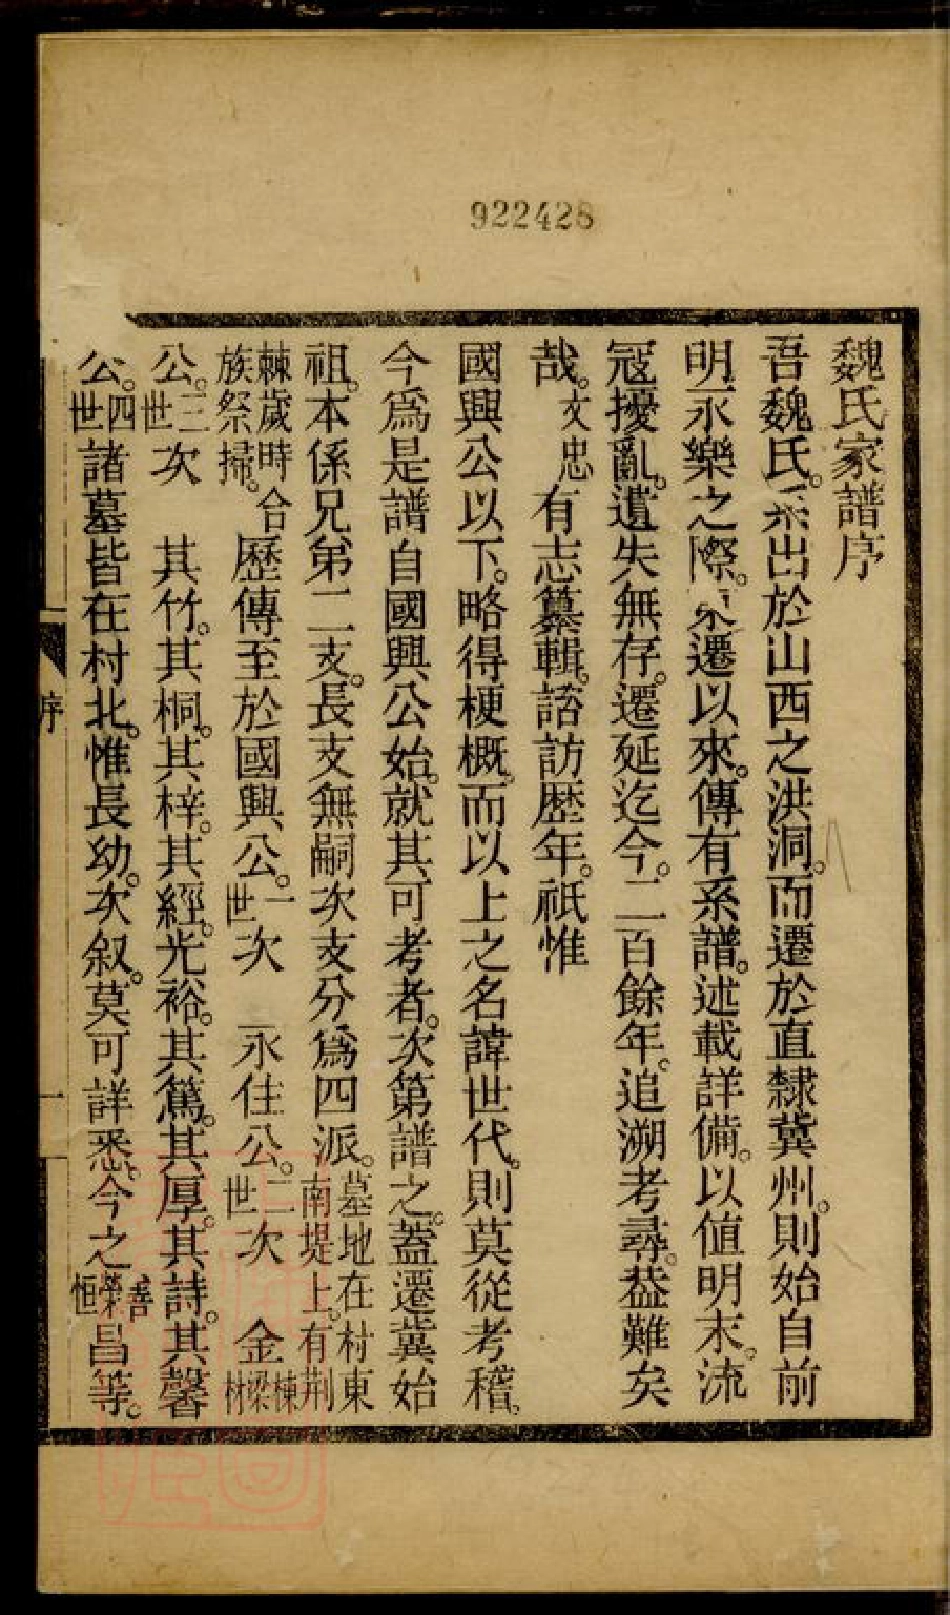 922428
魏氏家譜序
吾魏氏。系出於山西之洪洞。而遷於直隸冀州。則始自前
明永樂之際。東遷以來。傳有系譜。述載詳備。以値明末。流
寇擾亂。遺失無存。遷延迄今。二百餘年。追溯考尋。益難矣
哉。文忠有志纂輯。諮訪歷年。祇惟
國興公以下。略得梗概。而以上之名諱世代。則莫從考稽。
今爲是譜自國興公始。就其可考者。次第譜之。蓋遷冀始
祖。本係兄弟二支。長支無嗣次支分爲四派。墓地在村東南堤上。有荆
棘歲時合族祭掃。歷傳至於國興公。一世次 永住公。二世次 金棟樑材
公。三世次 其竹。其桐。其梓。其經。光裕。其篤。其厚。其詩。其馨
公。四世諸墓皆在村北。惟長幼。次叙。莫可詳悉。今之喜榮恒昌等。
序
一